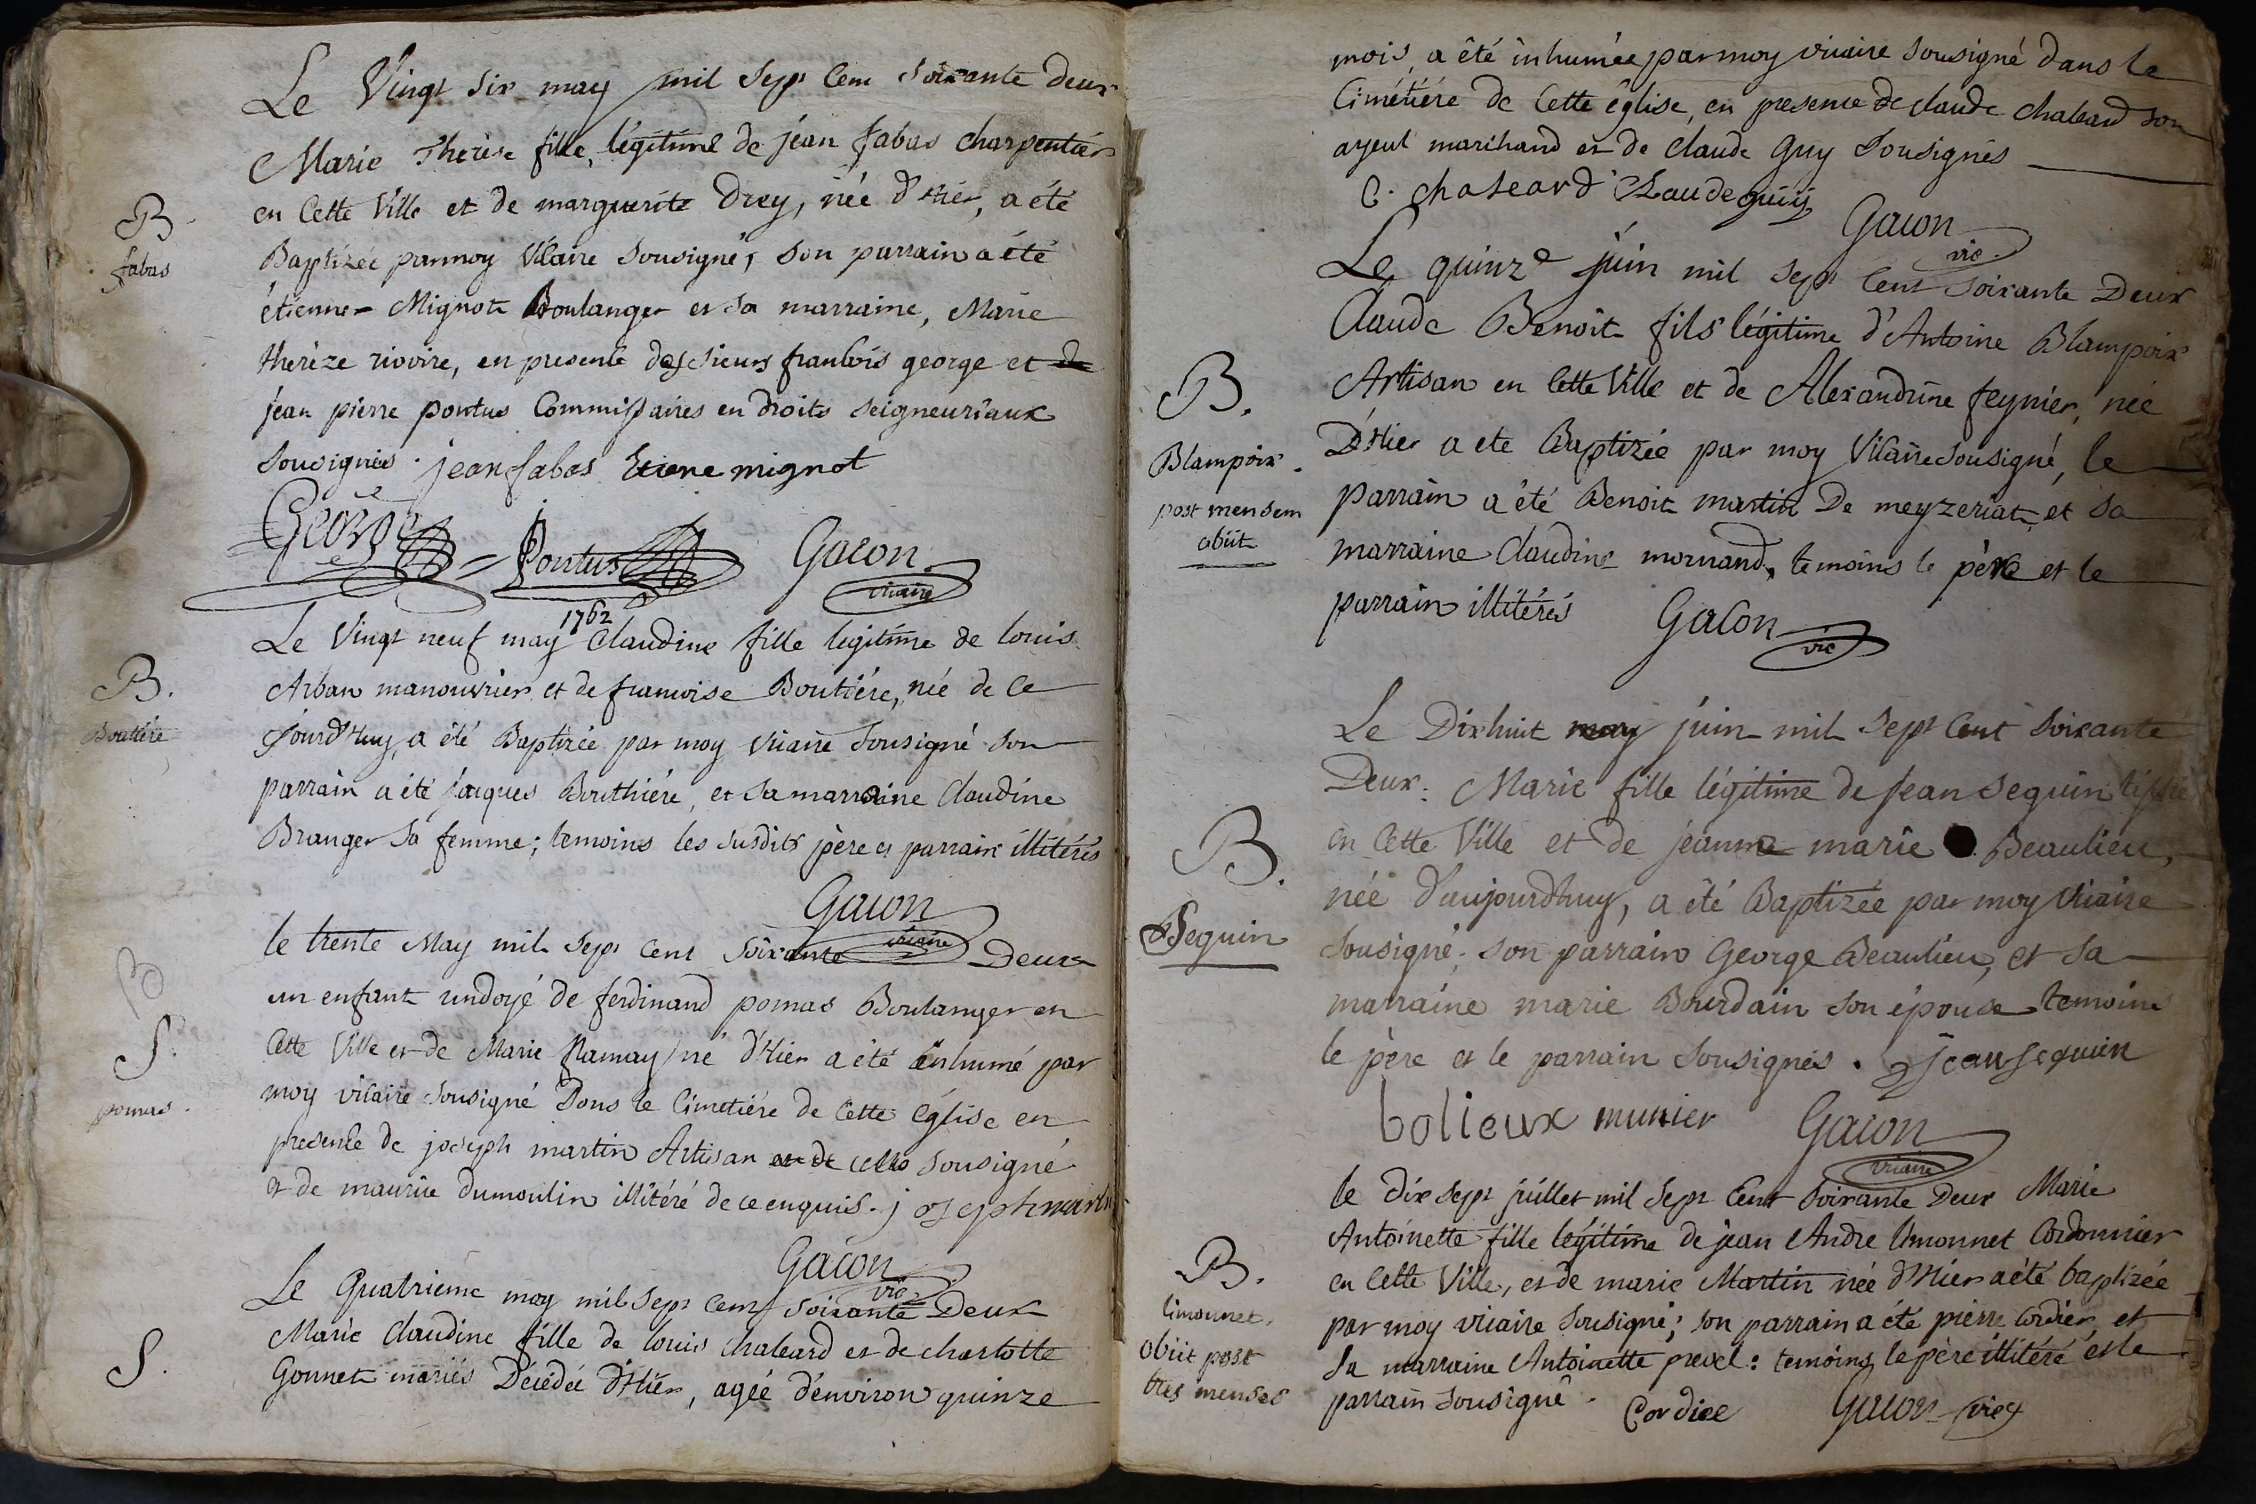 Le Vingt six may mil sept cent soixante deux
Marie Therese fille légitime de jéan fabas charpentier
B.
en cette Ville et de marguerite Drey, née d'Hier, a été
fabas
Baptizée par moy Vicaire sousigné, son parrain a été
étienne Mignot Boulanger et sa marraine, Marie
therèze rivoire, en presence des sieurs francois george et de
jéan pierre pontus Commissaires en droits seigneuriaux
sousignés. jean fabas Etiene mignot
George Pontus Gacon
vicaire
1762
Le Vingt neuf may Claudine fille legitime de louis
B.
Arban manouvrier et de francoise Boutiére, née de ce
Boutiére
jourd'Huy, a été Baptizée par moy vicaire sousigné son
parrain a été jacques Bouthiére, et sa marraine Claudine
Branger sa femme; temoins les susdits père et parrain illitérés
Gacon
vicaire
le trente May mil sept cent soixante Deux
B
un enfant undoyé de ferdinand pomas Boulanger en
S.
Cette Ville et de Marie Ramay né d'Hier a été inhumé par
pomas.
moy vicaire sousigné Dans le Cimetiére de Cette église en
presence de joseph martin Artisan et de sousigné
et de maurice dumoulin illitéré de ce enquis. joseph martin
Gacon
vic.
Le Quatriéme may mil sept cent soixante Deux
Marie Claudine fille de louis chaleard et de charlotte
S.
Gonnet mariés Décédée d'Hier, agée d'environ quinze
mois, a été inhumée par moy vicaire sousigné dans le
Cimétiére de Cette église, en presence de claude chaleard son
ayeul marchand et de claude Guy sousignés
C. chaleard Claude guiy
Gacon
vic.
Le quinze juin mil sept Cent soixante Deux
Claude Benoit fils légitime d'Antoine Blampoix
B.
Artisan en Cette Ville et de Alexandrine feynier, née
Blampoix.
D'Hier a ete Baptizée par moy Vicaire sousigné, le
post mensem
parrain a été Benoit martin De meyzeriat et sa
obiit
marraine Claudine mornand, temoins le père et le
parrain illitérés Gacon
vic
Le Dixhuit may juin mil sept Cent soixante
Deux: Marie fille légitime de Jean Seguin
B.
en Cette Ville et de jeanne marie Beaulieu,
née d'aujourdhuy, a été Baptizée par moy Vicaire
Seguin
sousigné; son parrain George Beaulieu, et sa
marraine marie Bourdain son épouse temoins
le père et le parrain sousignés. jean seguin
bolieux munier Gacon
vicaire
le dix sept juillet mil sept Cent soixante Deux Marie
Antoinette fille légitime de jean André limonnet Cordonnier
B.
en Cette Ville, et de marie Martin née d'Hier a été baptizée
limonnet.
par moy vicaire sousigné; son parrain a été pierre cordier, et
obiit post
sa marraine Antoinette prevel: temoins le père illitéré et le
tres menses
parrain sousigné. Cordiee Gacon vic